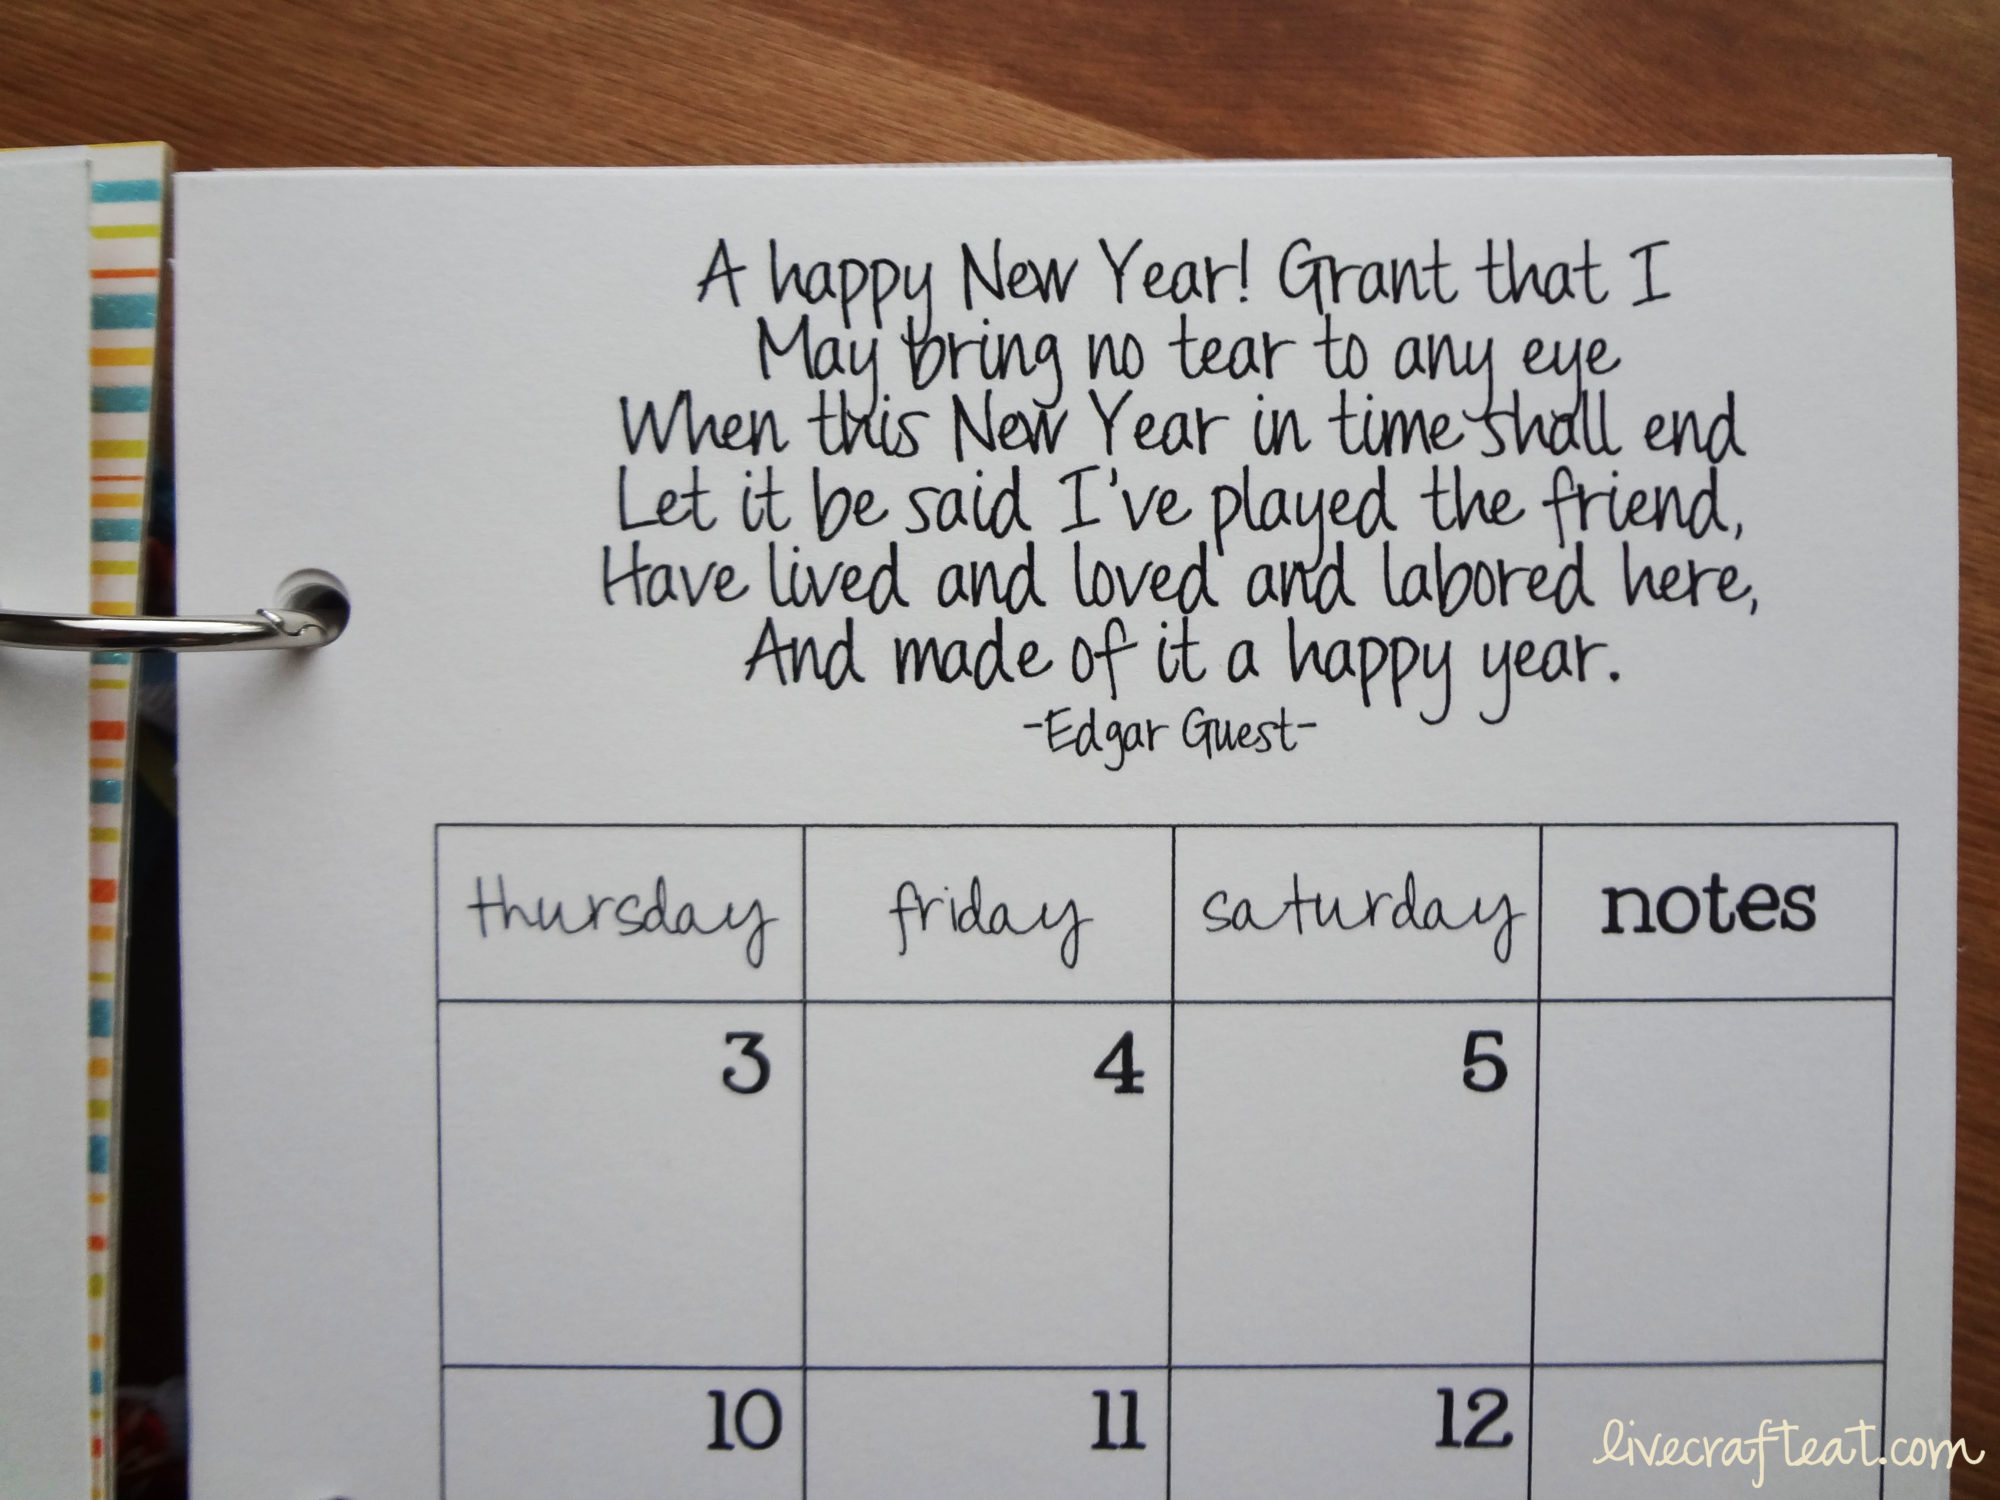 A happy New Year! Grant that I
May bring no tear to any eye
When this New Year in time shall end
Let it be said I've played the friend,
Have lived and loved and labored here,
And made of it a happy year.
-Edgar Guest-
thursday friday saturday notes
3 4 5
10 11 12
livecrafteat.com